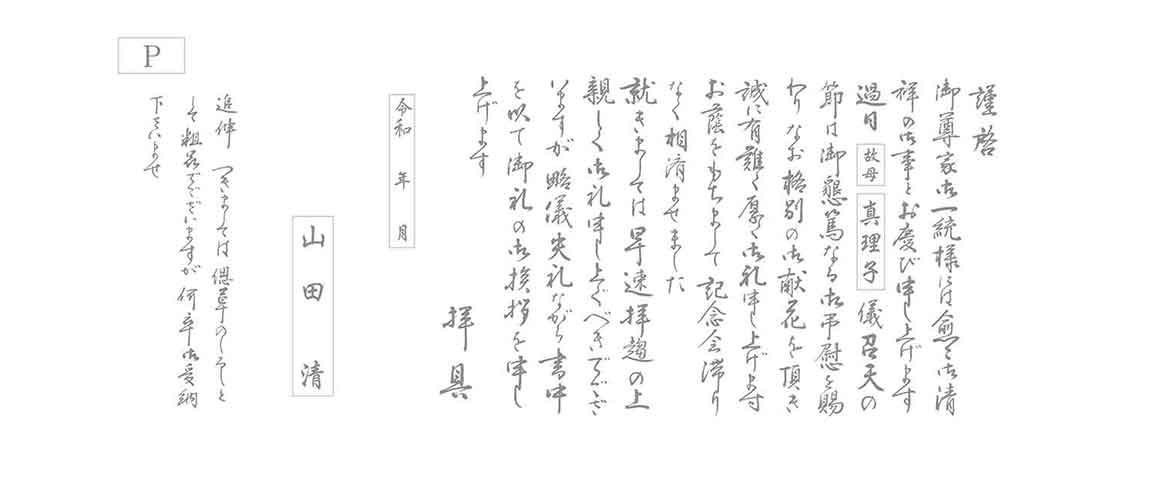 謹啓
御尊家御一統様には愈々御清
祥の御事とお慶び申し上げます
過日 故母 真理子 儀召天の
節は御懇篤なる御弔慰を賜
わりなお格別の御献花を頂き
誠に有難く厚く御礼申し上げます
お蔭をもちまして記念会滞り
なく相済ませました
就きましては早速拝趨の上
親しく御礼申し上ぐべきでござ
いますが略儀失礼ながら書中
を以て御礼の御挨拶を申し
上げます
拝具
令和 年 月
山田 清
追伸 つきましては偲草のしるしと
して粗品でございますが何卒御受納
下さいませ
P